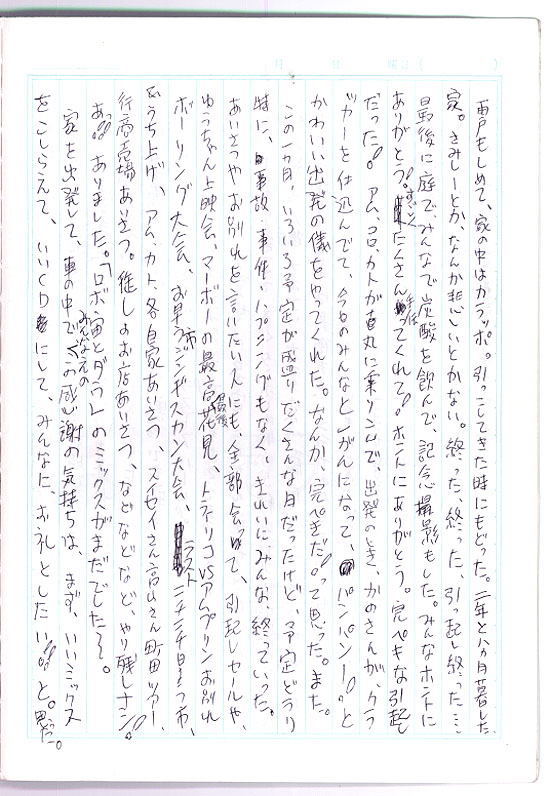 雨戸もしめて、家の中はカラッポ。引っこしてきた時にもどった。二年と八ヵ月暮した
家。さみしーとか、なんか悲しいとかない。終った、終った、引っ起し終った…
最後に庭で、みんなで炭酸を飲んで、記念撮影もした。みんなホントに
ありがとう!すごいたくさん手伝ってくれて!ホントにありがとう。完ペキな引起し
だった!アム、コロ、カトが真丸に乗りこんで、出発のとき、かのさんが、クラ
ッカーを仕込んでて、今日のみんなと しがんになって、パンパンー!と
かわいい出発の儀をやってくれた。なんか、完ぺきだ!って思った。また。
この一ヵ月、いろいろ予定が盛りだくさんな月だったけど、予定どうり
特に、事故、事件、ハプニングもなく、きれいにみんな、終っていった。
あいさつやお別れを言いたい人にも、全部会って、引起しセールや、
ゆうちゃん上映会、マーボーの最高最後花見、トネリコVSアムプリンお別れ
ボーリング大会、お早う市ジンギスカン大会、ラストニチニチ日よう市、
うち上げ、アム、カト、各自家あいさつ、スイセイさん高山さん町田ツアー、
行商売場あいさつ。推しのお店あいさつ、などなどなど、やり残しナシ!
あっ!! ありました。「ロボ宙とダウレ」のミックスがまだでした〜。
家を出発して、車の中で、みんなえのこの感謝の気持ちは、まず、いいミックス
をこしらえて、いいCDにして、みんなに、お礼としたい!!と。思った。